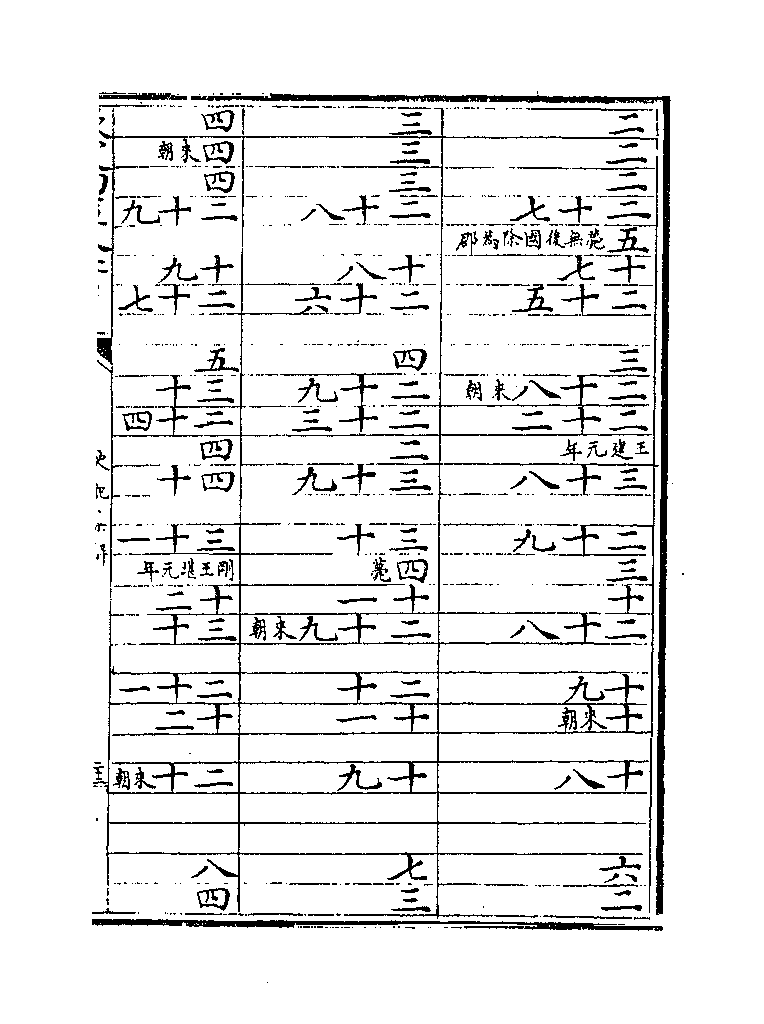 二
二
二
二十七
五薨無後國除為郡
十七
二十五
三
二十八來朝
二十二
王建元年
三十八
二十九
三
十
二十八
十九
十來朝
十八
六
二
三
三
三
二十八
十八
二十六
四
二十九
二十三
二
三十九
三十
四薨
十一
二十九來朝
二十
十一
十九
七
三
四
四來朝
四
二十九
十九
二十七
五
三十
二十四
四
四十
三十一
剛王堪元年
十二
三十
二十一
十二
二十來朝
八
四